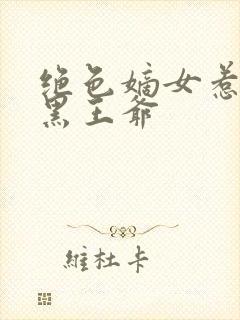 绝色嫡女惹
黑王爷
維杜卡